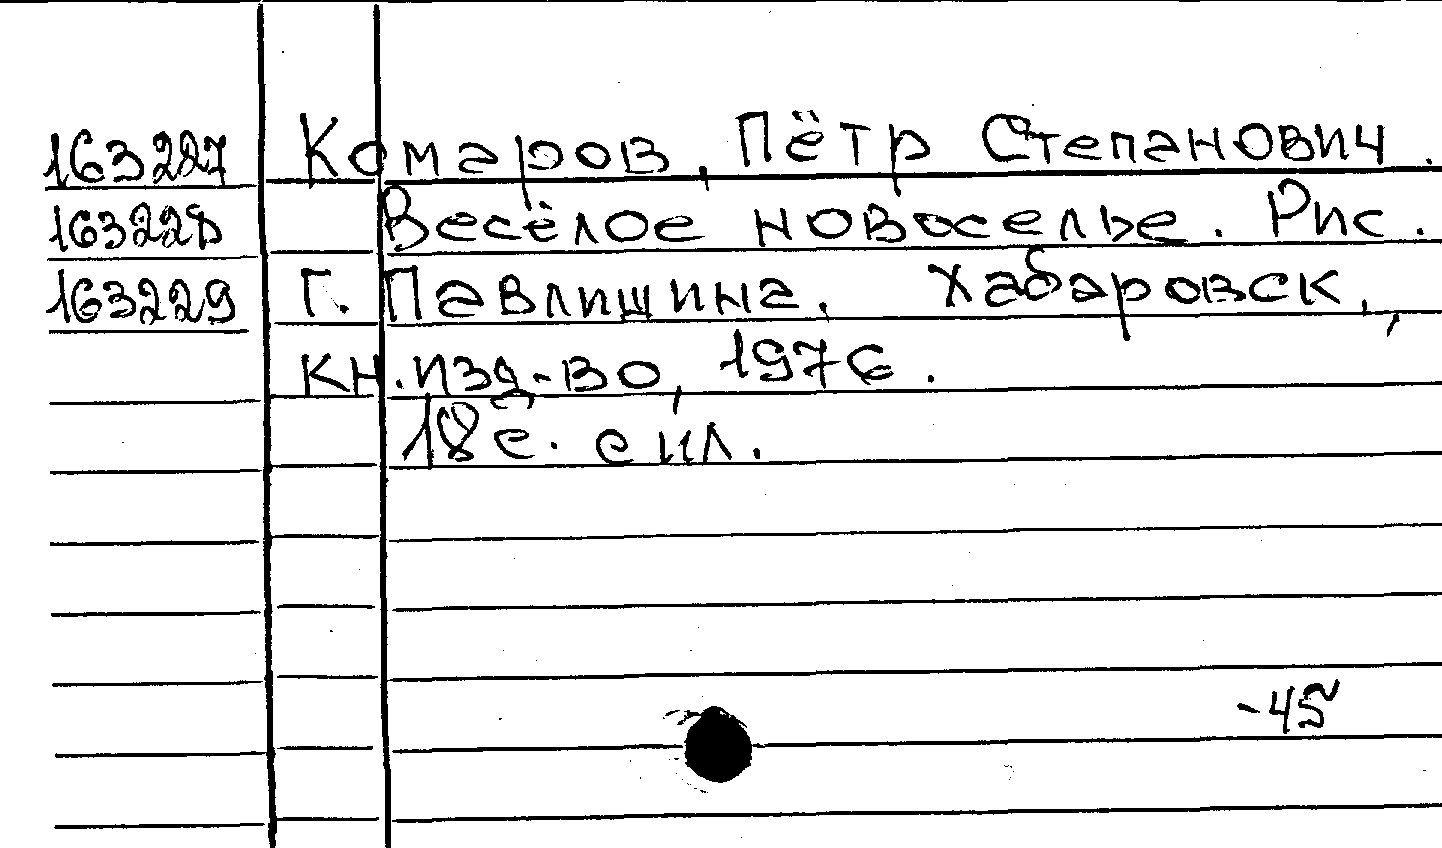 163227 Комаров, Пётр Степанович.
163228 Весёлое новоселье. Рис.
163229 Г. Павлишина. Хабаровск,
кн. изд-во, 1976.
18 с. с ил.
-45